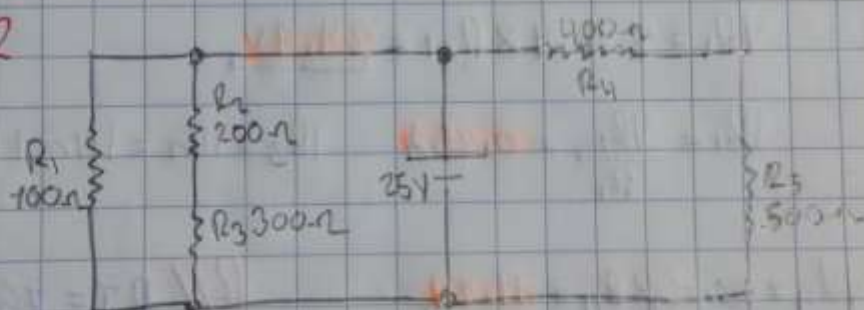 2
400Ω
R4
R2
200Ω
R1
100Ω
25V
R5
500Ω
R3 300Ω